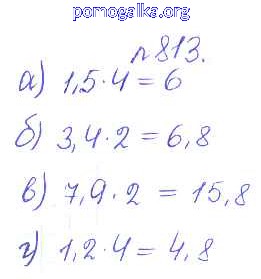 pomogalka.org
№813.
а) 1,5·4 = 6
б) 3,4·2 = 6,8
в) 7,9·2 = 15,8
г) 1,2·4 = 4,8